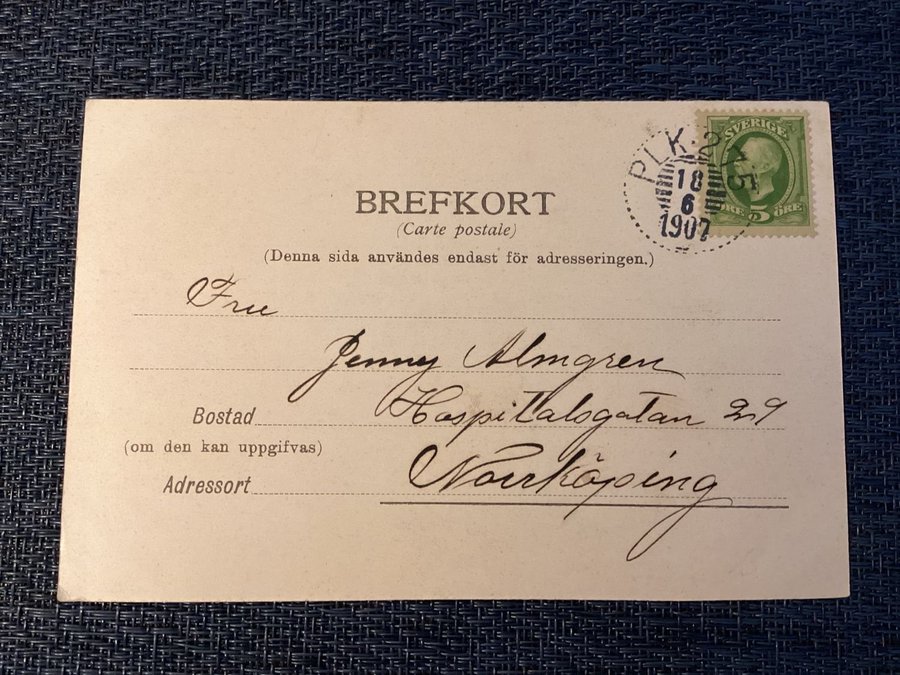 BREFKORT
(Carte postale)
(Denna sida användes endast för adresseringen.)
SVERIGE
ÖRE 5 ÖRE
PLK·215
18
6
1907
Fru
Jenny Almgren
Bostad Hospitalsgatan 29
(om den kan uppgifvas)
Adressort Norrköping